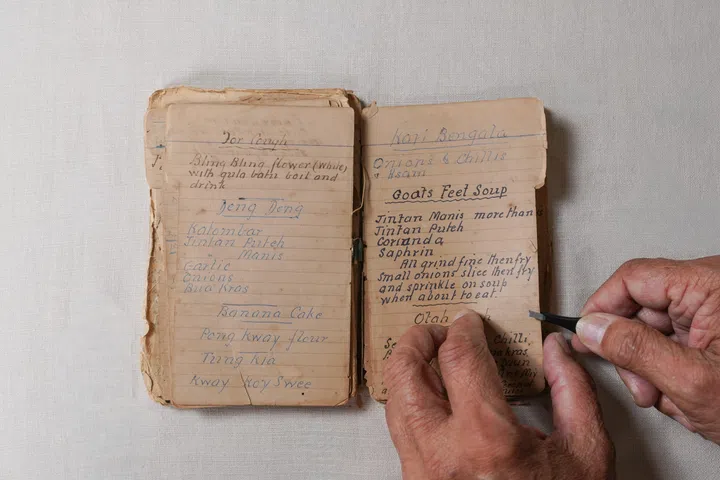 For Cough
Bling Bling flower (whole)
with gula batu boil and
drink
Deng Deng
Katombar
Jintan Puteh
Manis
Garlic
Onions
Bua Kras
Banana Cake
Pong Kway flour
Tung Kia
Kway Koy Swee
Kari Bengala
Onions & Chillis
& Asam
Goats Feet Soup
Jintan Manis more than
Jintan Puteh
Corianda
Saphrin
All grind fine then fry
Small onions slice then fry
and sprinkle on soup
when about to eat.
Olah
Chilli,